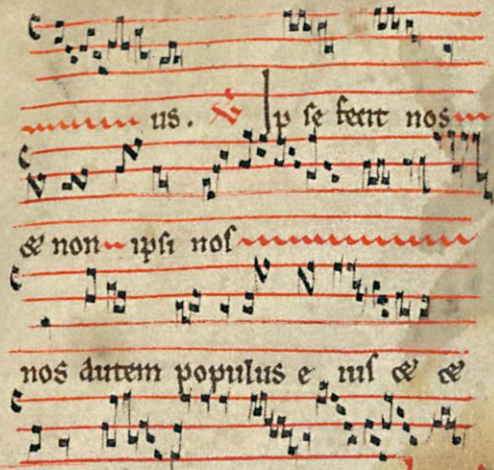 us. V Ipse fecit nos
& non ipsi nos
nos autem populus eius & &